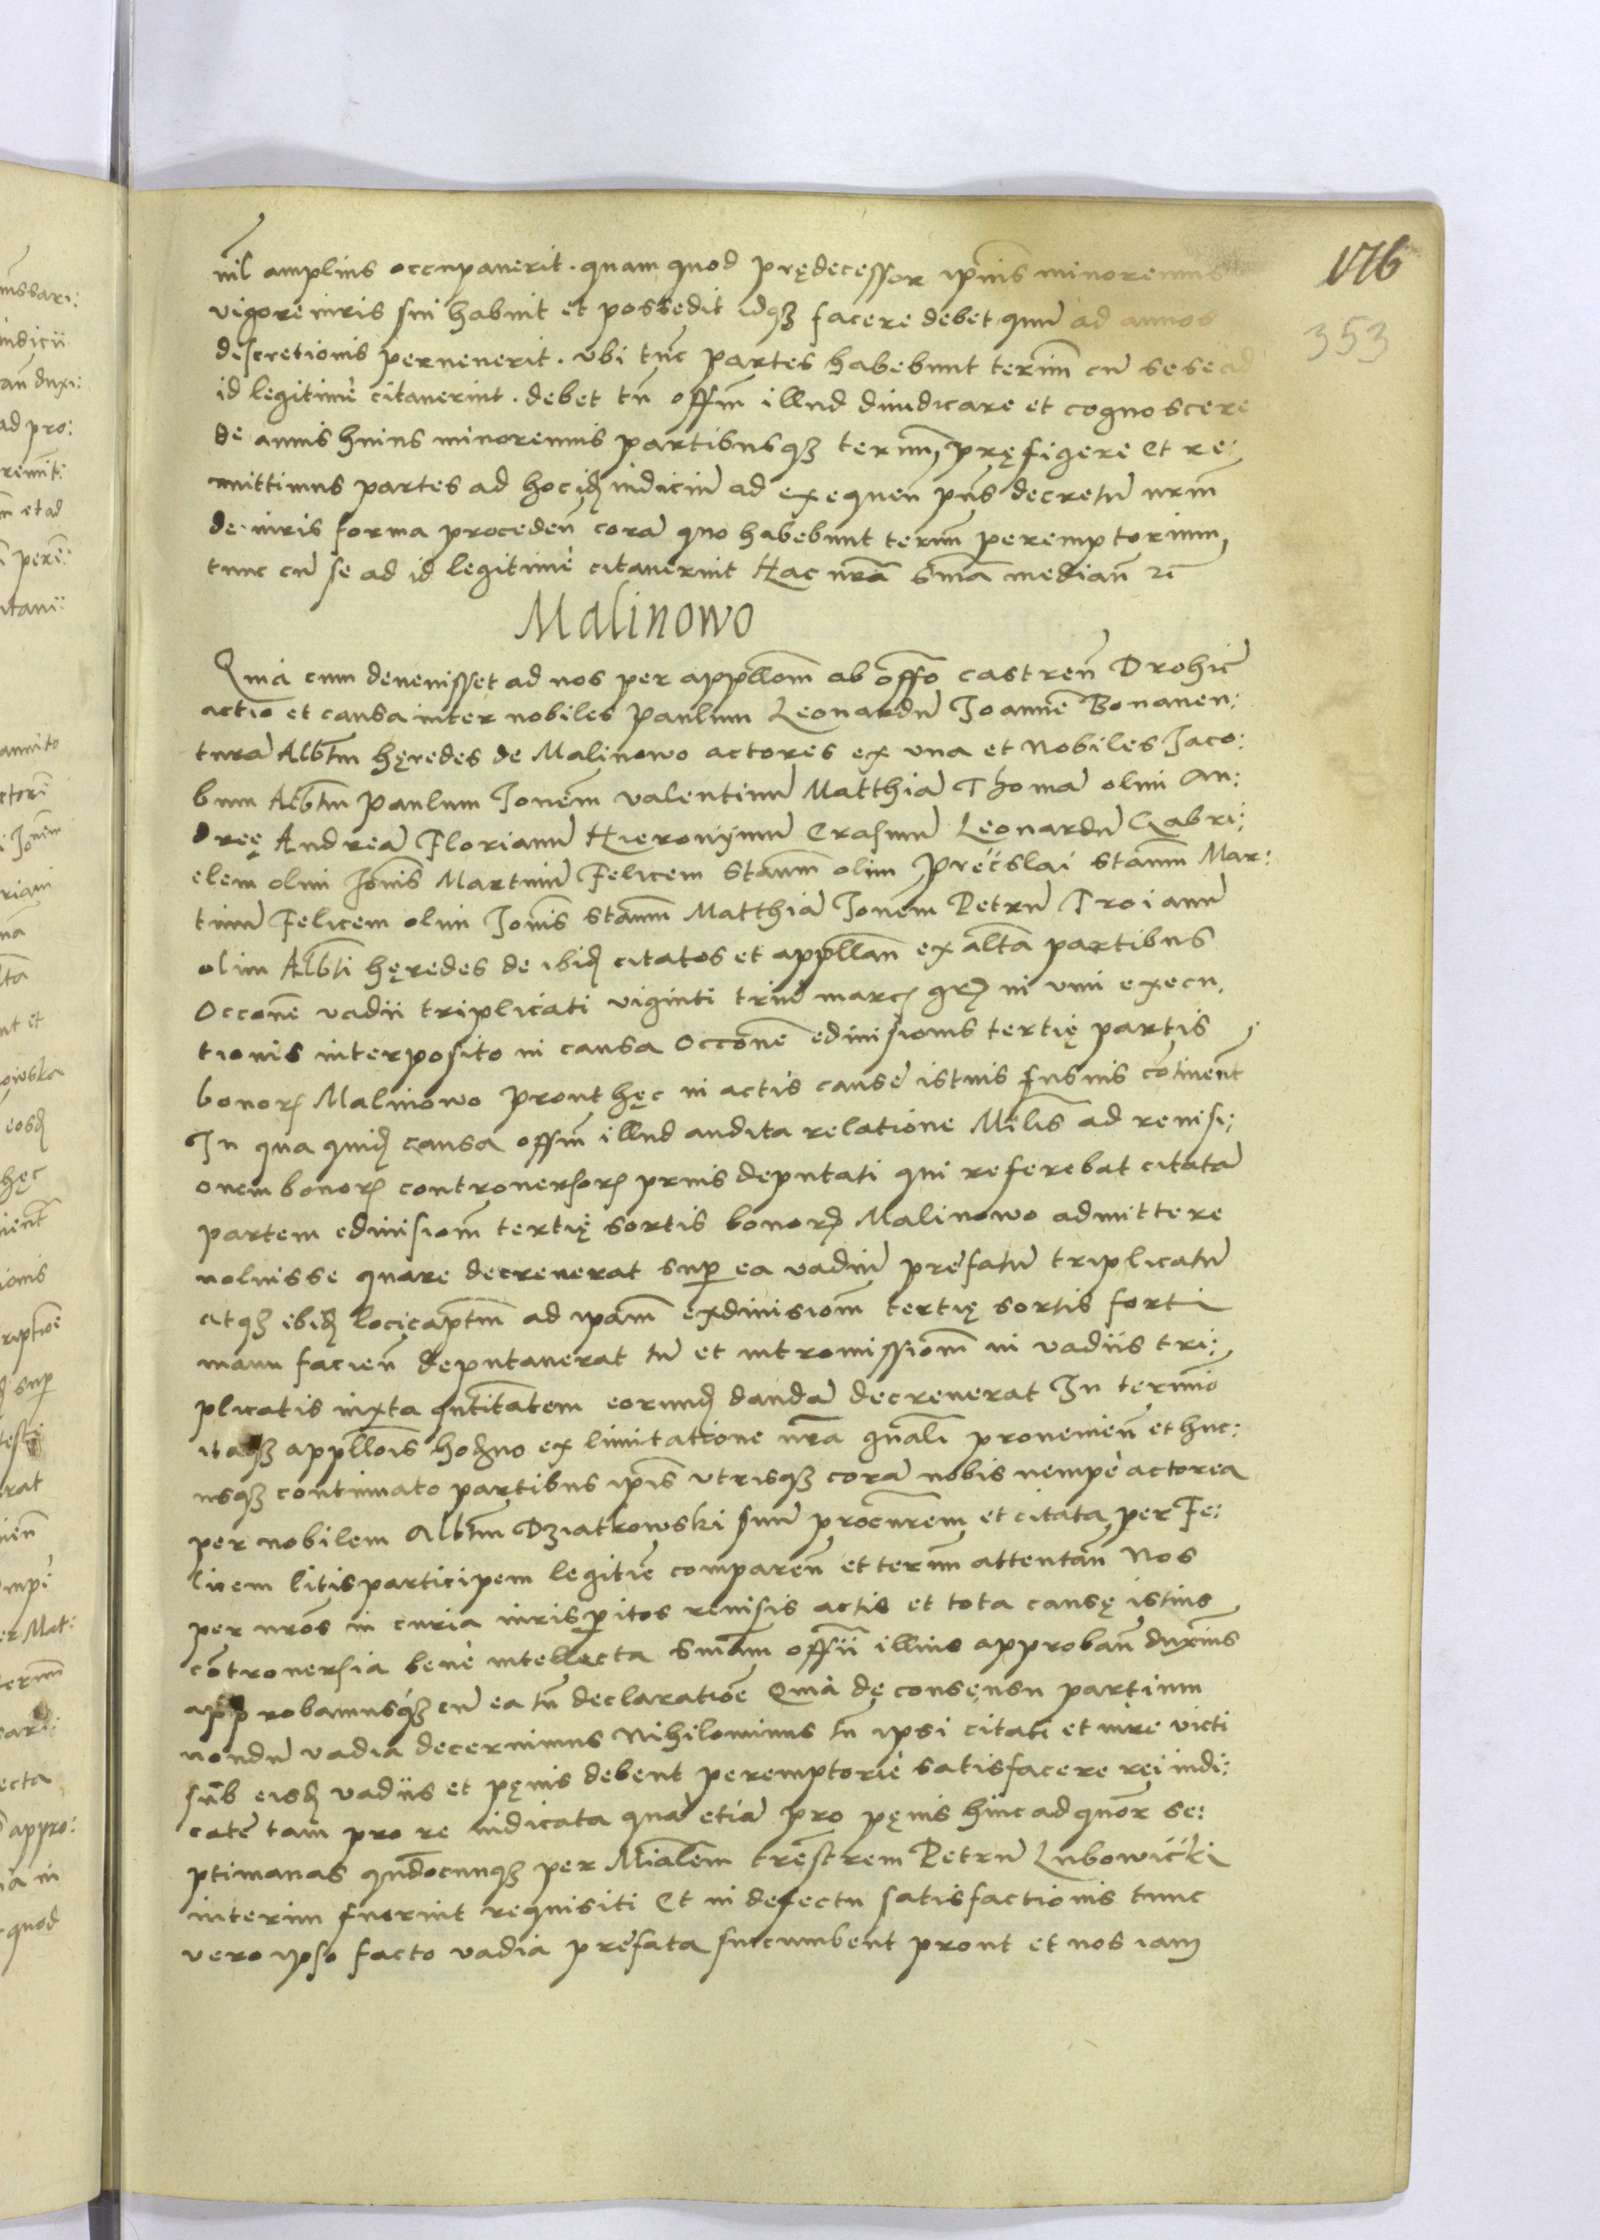 176
353
nil amplius occupaverit. quam quod prędecessor ipsius minorennis
vigore iuris sui habuit et possedit idqz facere debet quum ad annos
discretionis pervenerit. ubi tunc partes habebunt termin cu sese ad
id legitime citaverint. debet tn offm illud diiudicare et cognoscere
de annis huius minorennis partibusqz termin pręfigere Et re:
mittimus partes ad hoc id iudiciu ad exequen pns decretu nrm
de iuris forma proceden cora quo habebunt termin peremptorium
tunc cu se ad id legitime citaverint Hac nra sma median
Malinowo
Quia cum devenisset ad nos per appllom ab offo castren Drohic
actio et causa inter nobiles Paulum Leonardu Joanne Bonaven:
tura Albtm hęredes de Malinowo actores ex una et Nobiles Jaco:
bum Albtm Paulum Jonem valentinu Matthia Thoma olim An:
dreę Andrea Florianu Hieronijmu Erasmu Leonardu Gabri:
elem olim Jonis Martinu Felicem Stanm olim Precslai Stanm Mar:
tinu Felicem olim Jonis Stanm Matthia Jonem Petru Troianu
olim Albti hęredes de ibid citatos et appllan ex alta partibus
Occone vadii triplicati viginti trium marc gr in vim execu
tionis interposito in causa Occone edivisionis tertię partis
bonor Malinowo prout hęc in actis cause istius fusius continent
In qua quid causa offm illud audita relatione Mlis ad revisi:
onem bonor controversor prius deputati qui referebat citata
partem edivisiom tertię sortis bonor Malinowo admittere
noluisse quare decreverat sup ea vadiu prefatu triplicatu
atqz ibid locicaptm ad ipam exdivisiom tertię sortis forti
manu facien deputaverat tu et intromissiom in vadiis tri:
plicatis iuxta quntitatem eorund danda decreverat In termino
itaqz appllois hodno ex limitatione nra gnali provenien et huc:
usqz continuato partibus ipis utrisqz cora nobis nempe actorea
per nobilem Albtm Dziatkowski suu procurem et citata per Fe:
licem litis participem legitie comparen et termin attentan Nos
per nros in curia iurisperitos revisis actis et tota causę istius
controversia bene intellecta smam offii illius approban duximus
approbamusqz cu ea tn declaratioe Quia de consensu partium
nondu vadia decernimus Nihilominus tn ipsi citati et iure victi
sub eisd vadiis et pęnis debent peremptorie satisfacere rei iudi:
cate tam pro re iudicata qua etia pro pęnis hinc ad quor se:
ptimanas qundocunqz per Mialem trestrem Petru Lubowicki
interim fuerint requisiti Et in defectu satisfactionis tunc
vero ipso facto vadia prefata succumbent prout et nos iam